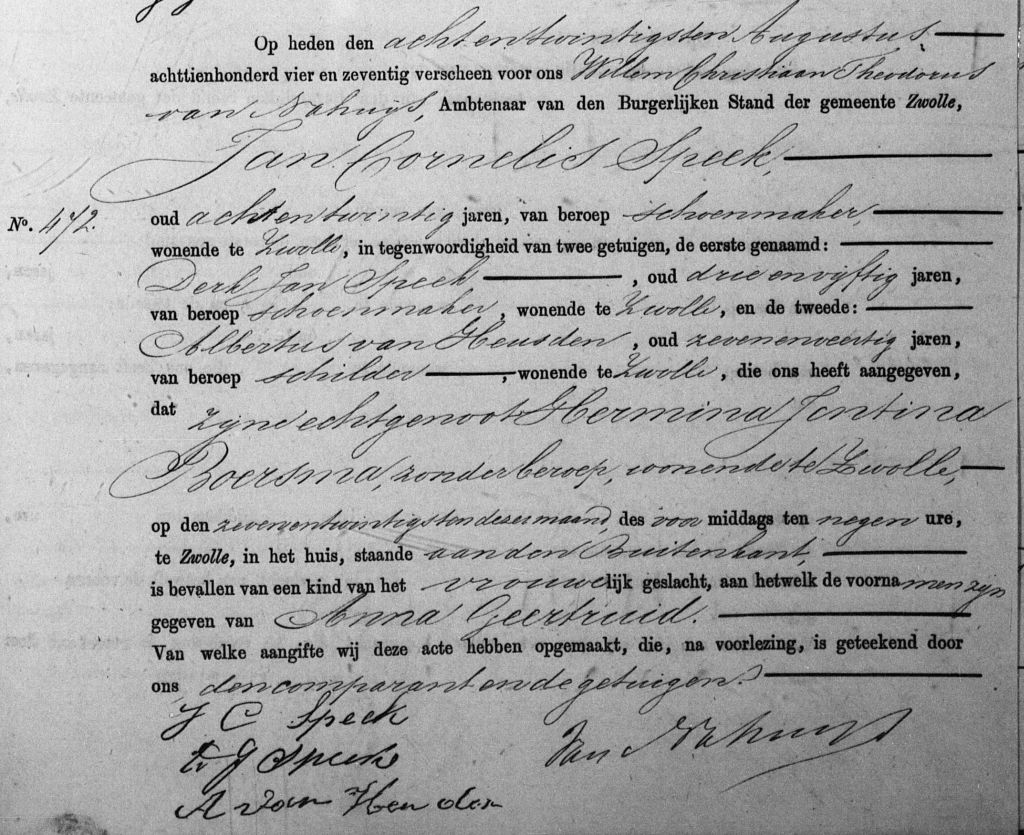 Op heden den achtentwintigsten Augustus
achttienhonderd vier en zeventig verscheen voor ons Willem Christiaan Theodorus
van Nahuys, Ambtenaar van den Burgerlijken Stand der gemeente Zwolle,
Jan Cornelis Speek,
No. 472.
oud achtentwintig jaren, van beroep schoenmaker,
wonende te Zwolle, in tegenwoordigheid van twee getuigen, de eerste genaamd:
Derk Jan Speek, oud drieenvyftig jaren,
van beroep schoenmaker, wonende te Zwolle, en de tweede:
Albertus van Heusden, oud zevenenveertig jaren,
van beroep schilder, wonende te Zwolle, die ons heeft aangegeven,
dat zyne echtgenoot Hermina Jentina
Boersma, zonder beroep, wonende te Zwolle,
op den zevenentwintigsten dezer maand, des voor middags ten negen ure,
te Zwolle, in het huis, staande aan den Buitenkant,
is bevallen van een kind van het vrouwelijk geslacht, aan hetwelk de voornamen zyn
gegeven van Anna Geertruid.
Van welke aangifte wij deze acte hebben opgemaakt, die, na voorlezing, is geteekend door
ons den comparant en de getuigen.
J C Speek
J Speek
Van Nahuys
A van Heusden